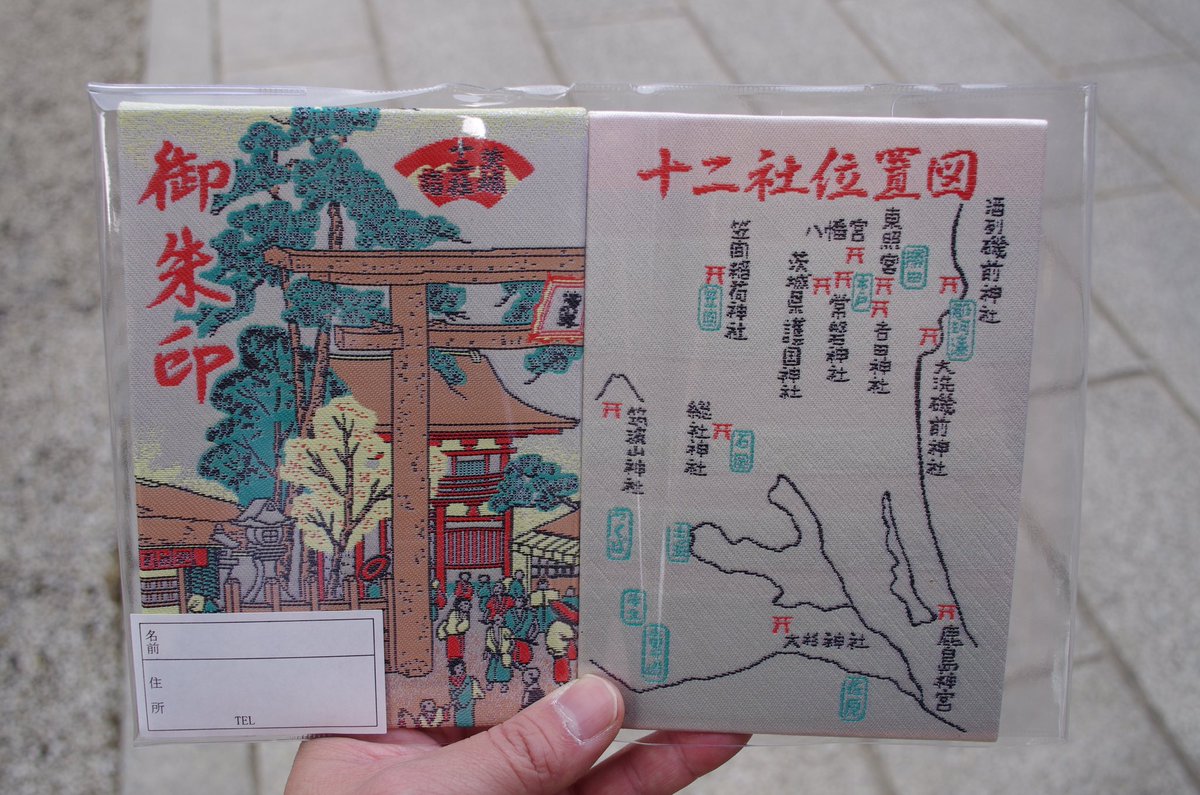 御朱印
名前
住所
TEL
十二社位置図
酒列磯前神社
東照宮
八幡宮
笠間稲荷神社
茨城県護国神社
常磐神社
吉田神社
大洗磯前神社
勝田
水戸
那珂湊
笠間
筑波山神社
総社神社
石岡
つくば
土浦
大杉神社
鹿島神宮